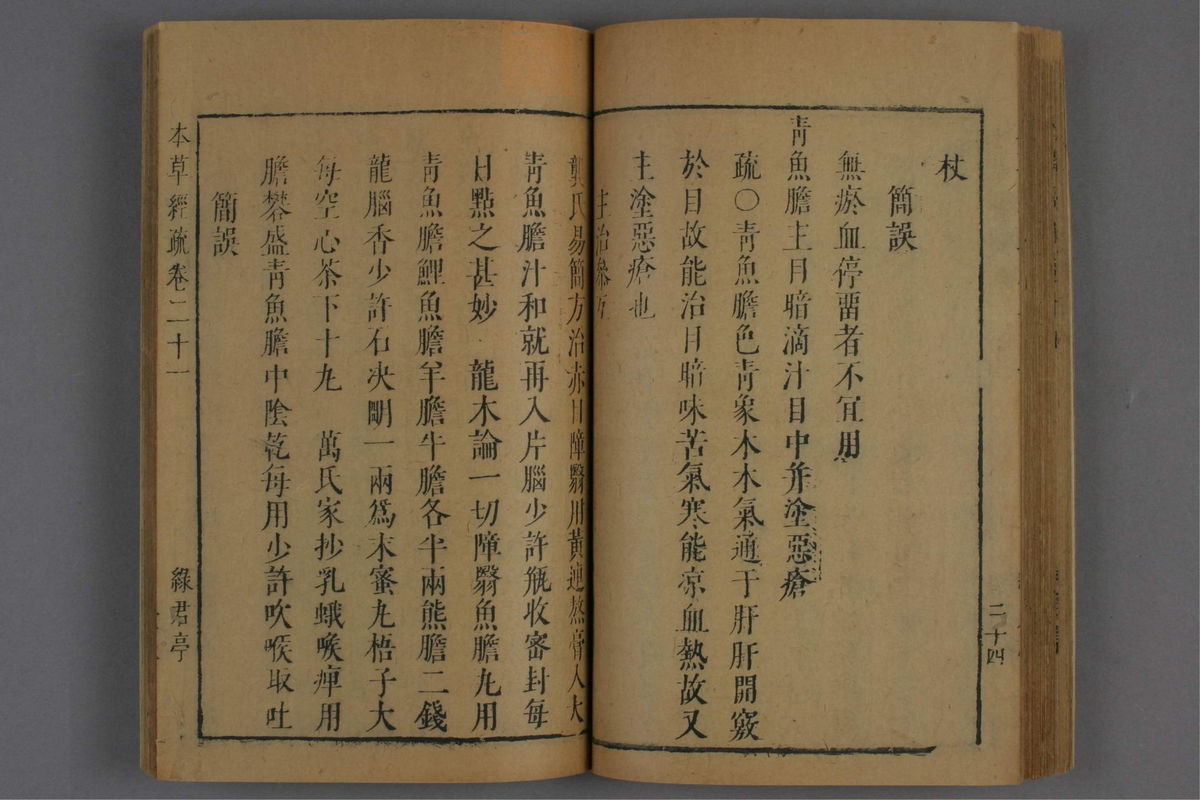 杖
簡誤
無瘀血停畱者不宜用
青魚膽主目暗滴汁目中并塗惡瘡
疏○青魚膽色青象木木氣通于肝肝開竅
於目故能治目暗味苦氣寒能凉血熱故又
主塗惡瘡也
主治參互
二十四
龔氏易簡方治赤目障翳用黃連熬膏入大
青魚膽汁和就再入片腦少許瓶收密封每
日點之甚妙 龍木論一切障翳魚膽丸用
青魚膽鯉魚膽羊膽牛膽各半兩熊膽二錢
龍腦香少許石决明一兩爲末蜜丸梧子大
每空心茶下十丸 萬氏家抄乳蛾喉痺用
膽礬盛青魚膽中陰乾每用少許吹喉取吐
簡誤
本草經疏卷二十一
綠君亭